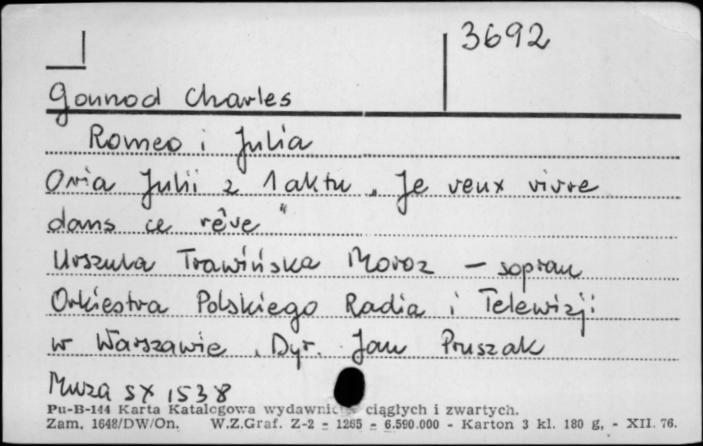 3692
Gounod Charles
Romeo i Julia
Aria Julii z 1 aktu „Je veux vivre
dans ce rêve"
Urszula Trawińska Moroz - sopran
Orkiestra Polskiego Radia i Telewizji
w Warszawie. Dyr. Jan Pruszak
Muza SX 1538
Pu-B-144 Karta Katalogowa wydawnictw ciągłych i zwartych.
Zam. 1648/DW/On. W.Z.Graf. Z-2 - 1265 - 6.590.000 - Karton 3 kl. 180 g, - XII. 76.